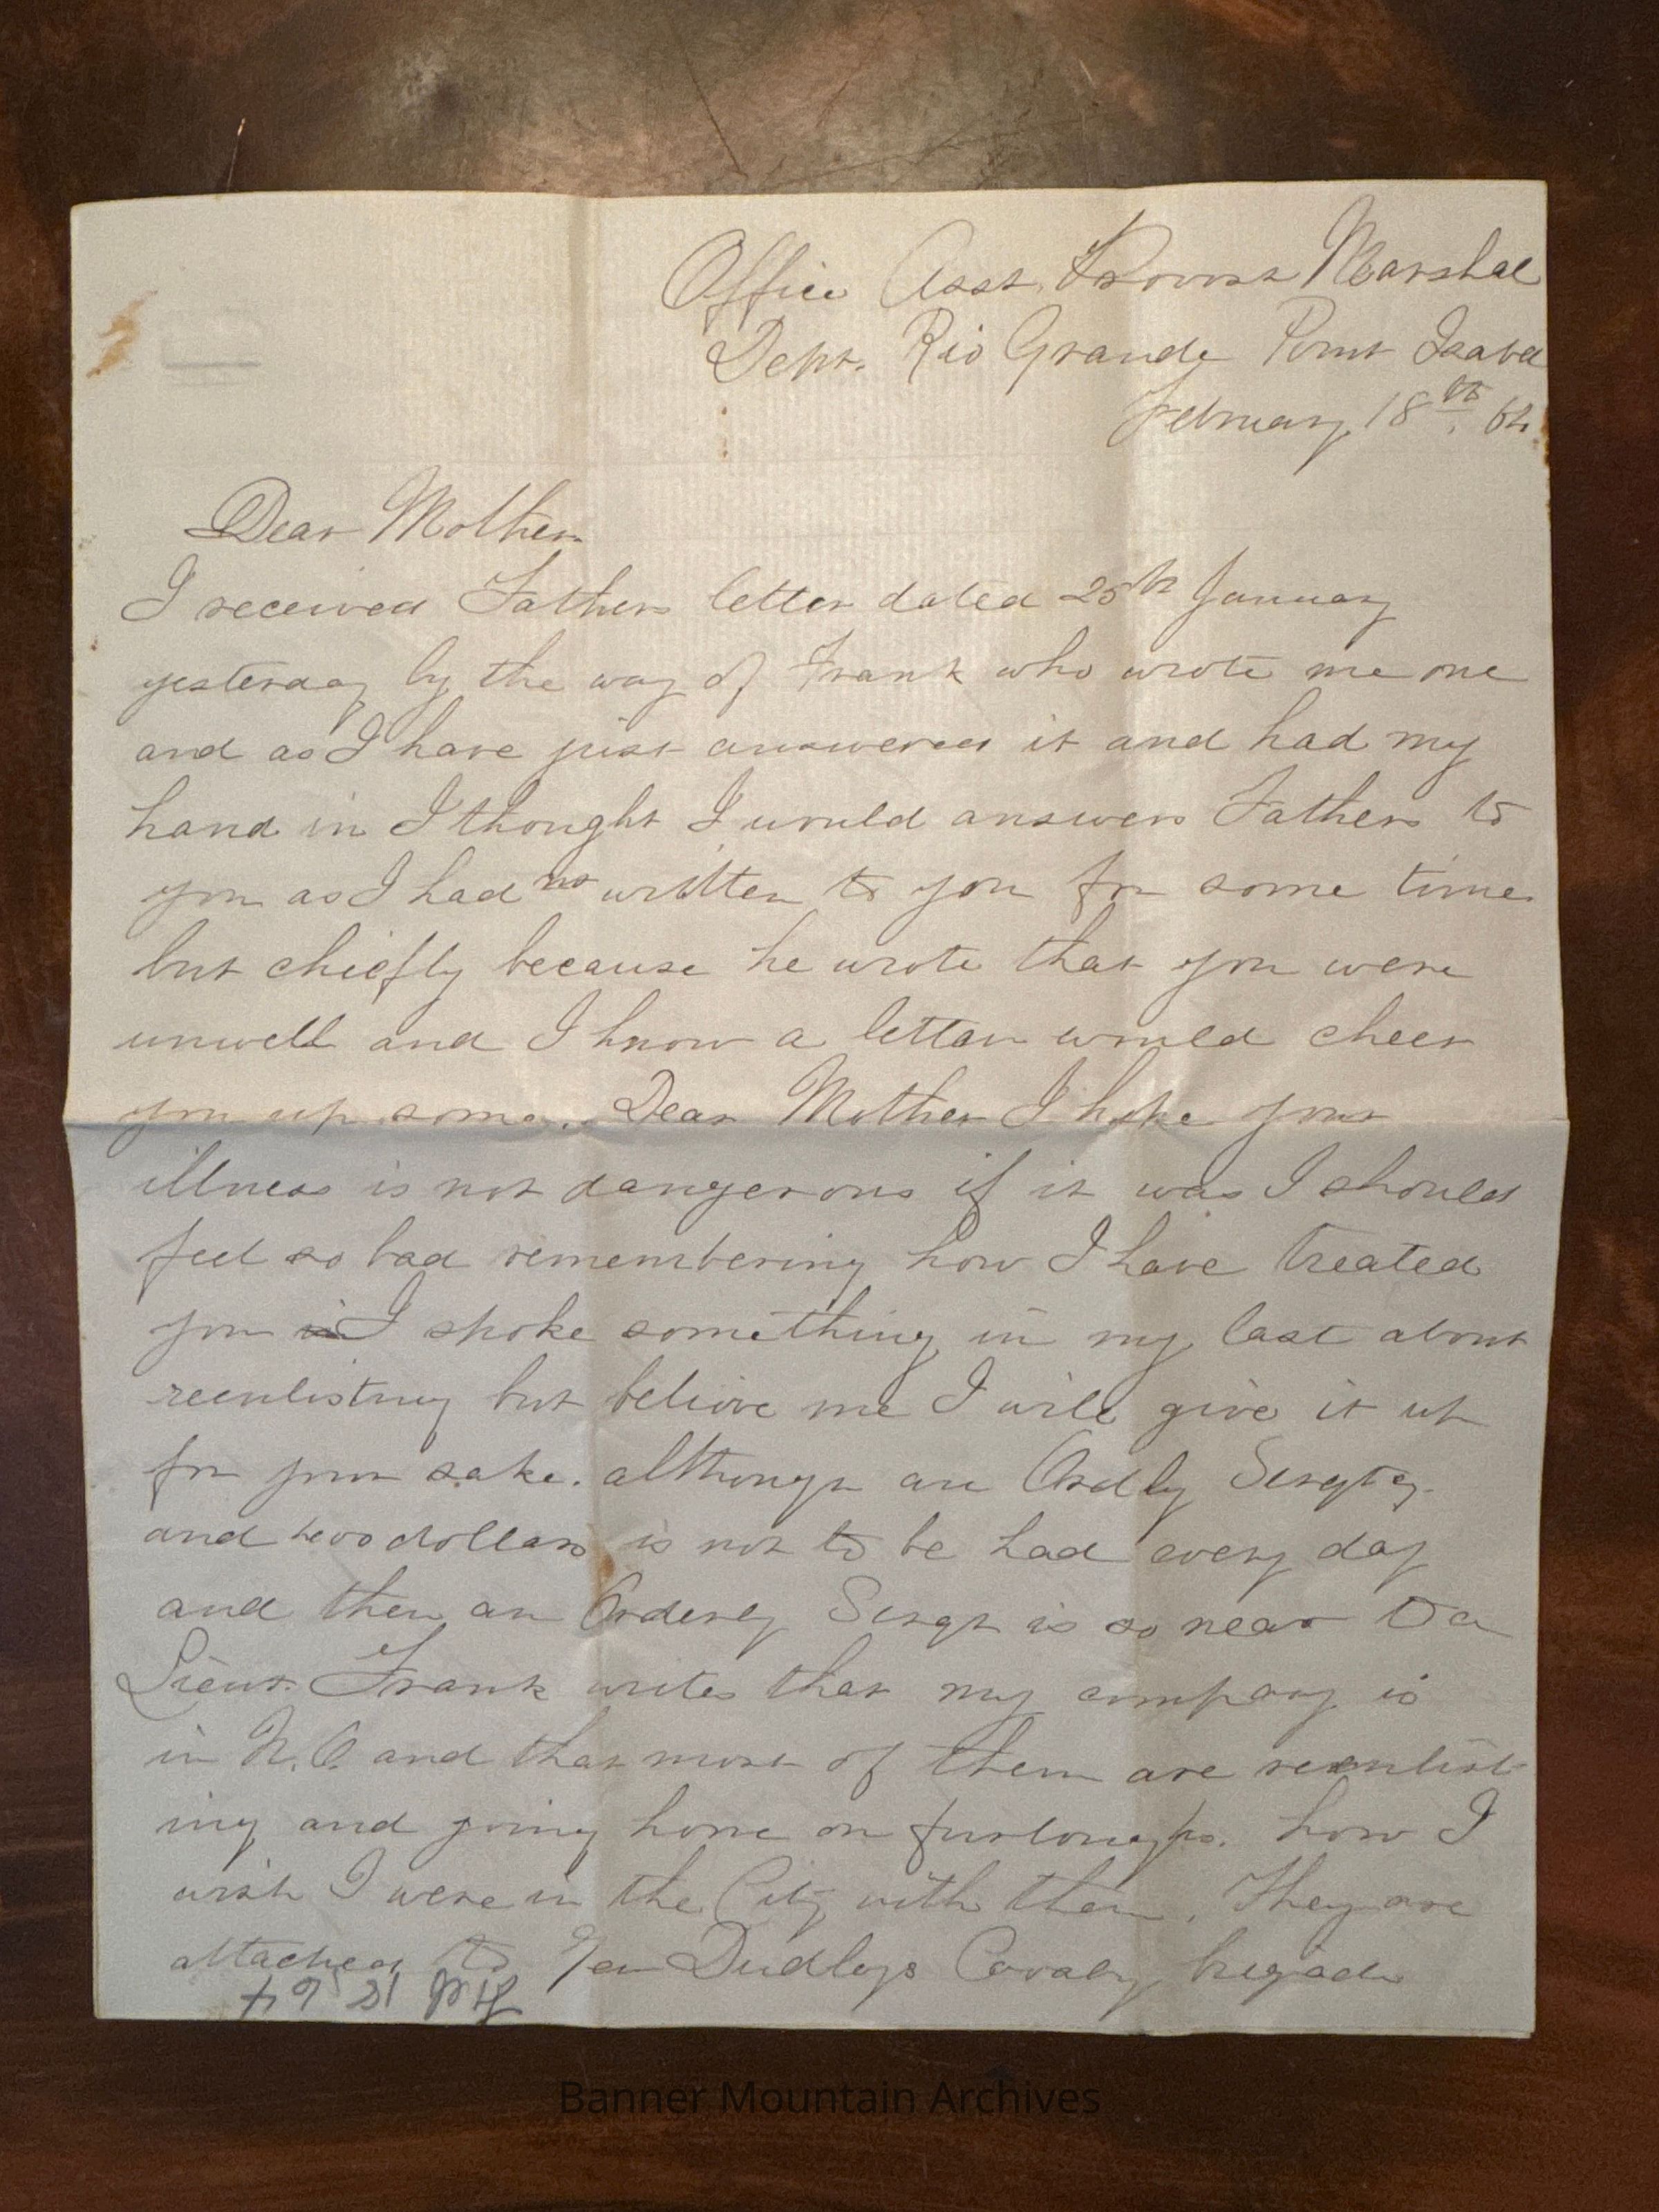 Office Asst. Provost Marshal
Dept. Rio Grande Point Isabel
February 18th. 64
Dear Mother
I received Fathers letter dated 25th January
yesterday by the way of Frank who wrote me one
and as I have just answered it and had my
hand in I thought I would answer Fathers to
you as I had no written to you for some time
but chiefly because he wrote that you were
unwell and I know a letter would cheer
you up some. Dear Mother I hope your
illness is not dangerous if it was I should
feel so bad remembering how I have treated
you I spoke something in my last about
reenlisting but believe me I will give it up
for your sake. although an Ordly Sergtcy.
and dollars is not to be had every day
and then an Orderly Sergt is so near to a
Lieut. Frank writes that my company is
in N.O. and that most of them are reenlist-
ing and going home on furloughs. how I
wish I were in the City with them. They are
attached to Gen Dudleys Cavalry brigade
Feb 18 64
Banner Mountain Archives